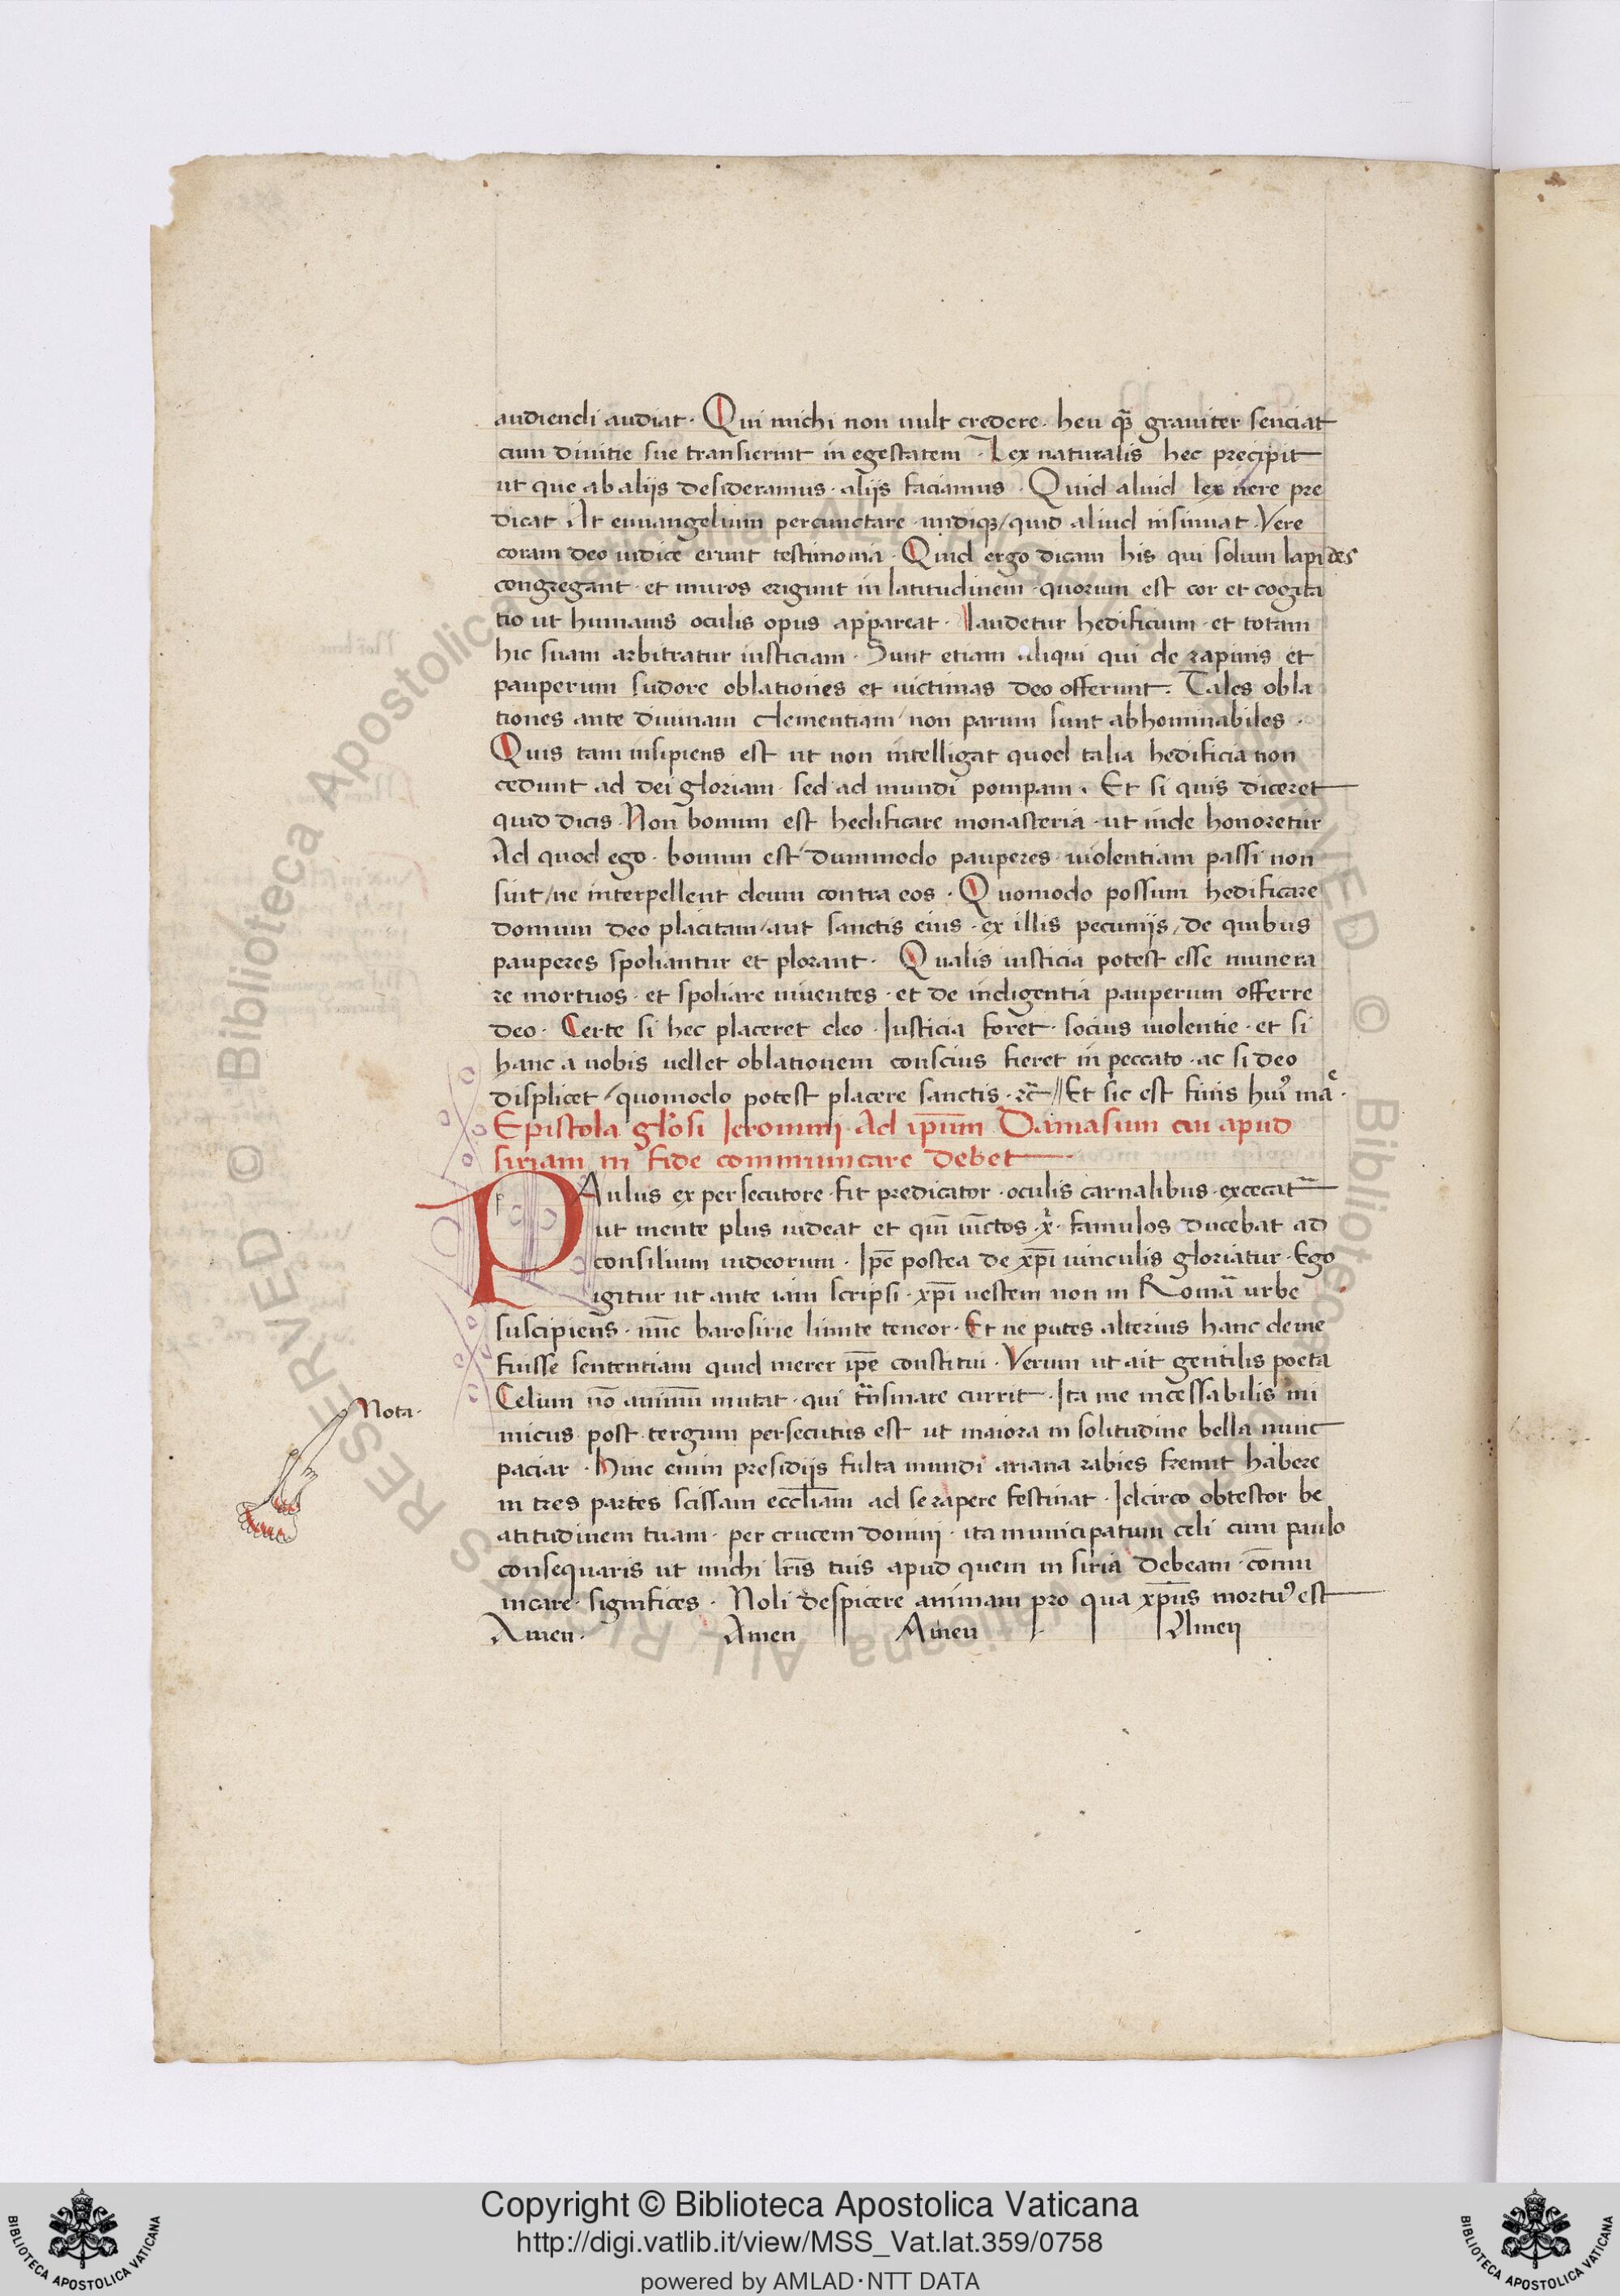 audiendi audiat · Qui michi non uult credere · heu q̄ȝ grauiter senciat
cum diuitie sue transierint in egestatem · Lex naturalis hec precipit
ut que ab alijs desideramus · alijs faciamus · Quid aliud lex uere pre
dicat At euuangelium percunctare undiqȝ / quid aliud insinuat · Vere
coram deo iudice erunt testimonia · Quid ergo dicam his qui solum lapides
congregant · et muros erigunt in latitudinem · quorum est cor et cogita
tio ut humanis oculis opus appareat · laudetur hedificium · et totam
hic suam arbitratur iusticiam · Sunt etiam aliqui qui de rapinis et
pauperum sudore oblationes et uictimas deo offerunt · Tales obla
tiones ante diuinam clementiam / non parum sunt abhominabiles ·
Quis tam insipiens est ut non intelligat quod talia hedificia non
cedunt ad dei gloriam · sed ad mundi pompam · Et si quis diceret
quid dicis · Non bonum est hedificare monasteria · ut inde honoretur
Ad quod ego · bonum est / dummodo pauperes uiolentiam passi non
sint / ne interpellent deum contra eos · Quomodo possum hedificare
domum deo placitam / aut sanctis eius · ex illis pecunijs / de quibus
pauperes spoliantur et plorant · Qualis iusticia potest esse munera
re mortuos · et spoliare uiuentes · et de indigentia pauperum offerre
deo · Certe si hec placeret deo · Iusticia foret · socius uiolentie · et si
hanc a uobis uellet oblationem conscius fieret in peccato · ac si deo
displicet / quomodo potest placere sanctis · ⁊c̄ // Et sic est finis huiꝰ mae ·
Epistola gl'osi Ieronimi · Ad ip̄um Damasum cui apud
siriam in fide communicare debet
PAulus ex persecutore · fit predicator · oculis carnalibus · excecat
ut mente plus uideat et qui uīctos · xp̄i · famulos ducebat ad
consilium iudeorum · Ip̄e postea de xp̄i uinculis gloriatur · Ego
igitur ut ante iam scripsi · xp̄i uestem non in Romā urbe
suscipiens · nūc barosirie limite teneor · Et ne putes alterius hanc de me
fuisse sententiam quid merer ip̄e constitui · Verum ut ait gentilis poeta
Celum nō animū mutat · qui tn̄smare currit · Ita me incessabilis ini
micus post tergum persecutus est ut maiora in solitudine bella nunc
paciar · Hinc enim presidijs fulta mundi ariana rabies fremit habere
in tres partes scissam eccl̄iam ad se rapere festinat · Idcirco obtestor be
atitudinem tuam · per crucem domini · ita municipatum celi cum paulo
consequaris ut michi lr̄is tuis apud quem in siria debeam · cōmu
nicare · significes · Noli despicere animam pro qua xp̄us mortuꝰ est
Amen · Amen Amen · Amen
Nota ·
Copyright © Biblioteca Apostolica Vaticana
http://digi.vatlib.it/view/MSS_Vat.lat.359/0758
powered by AMLAD·NTT DATA
BIBLIOTECA APOSTOLICA VATICANA
BIBLIOTECA APOSTOLICA VATICANA
© Biblioteca Apostolica Vaticana ALL RIGHTS RESERVED
© Biblioteca Apostolica Vaticana ALL RIGHTS RESERVED